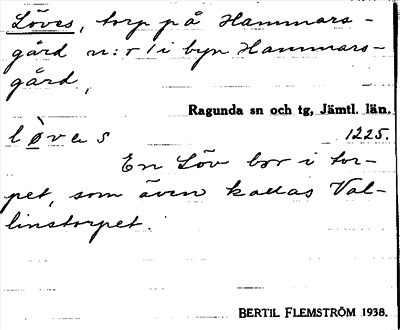 Löves, torp på Hammars-
gård n:r 1 i byn Hammars-
gård,
Ragunda sn och tg, Jämtl. län.
lø̀vas 1225.
En Löv bor i tor-
pet, som även kallas Val-
linstorpet.
BERTIL FLEMSTRÖM 1938.